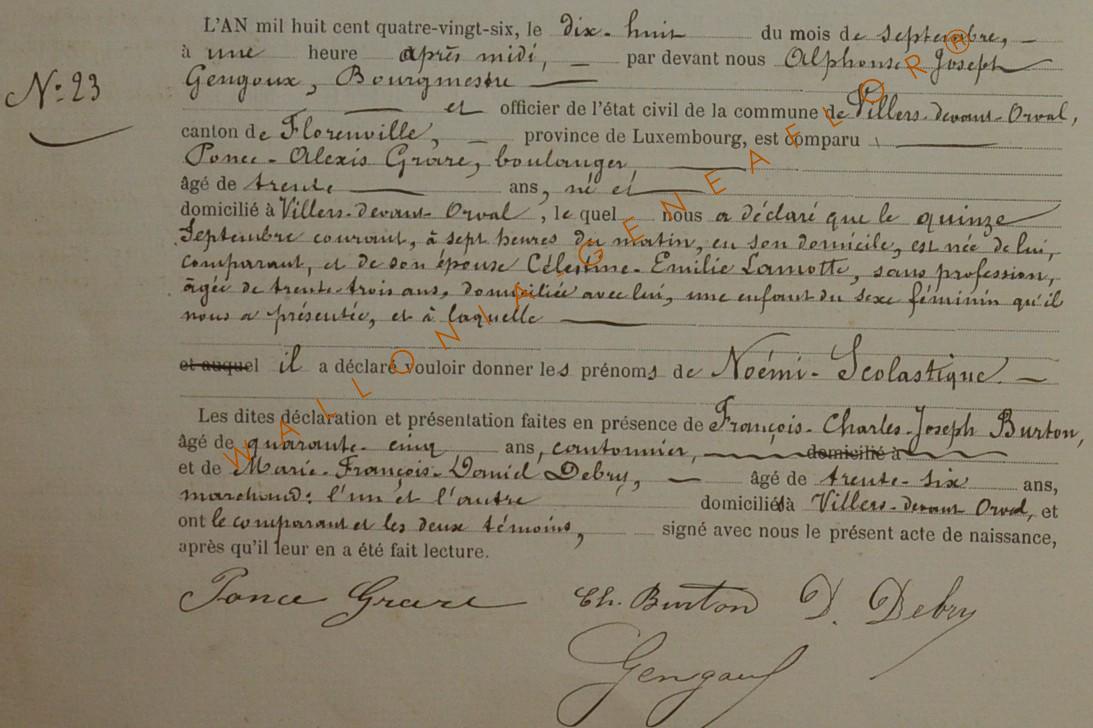 L'AN mil huit cent quatre-vingt-six, le dix-huit du mois de septembre,
à une heure après midi, par devant nous Alphonse Joseph
N° 23
Gengoux, Bourgmestre
et officier de l'état civil de la commune de Villers-devant-Orval,
canton de Florenville, province de Luxembourg, est comparu
Ponce-Alexis Grare, boulanger,
âgé de trente ans, né et
domicilié à Villers-devant-Orval, le quel nous a déclaré que le quinze
Septembre courant, à sept heures du matin, en son domicile, est née de lui,
comparant, et de son épouse Célestine-Emilie Lamotte, sans profession,
âgée de trente-trois ans, domiciliée avec lui, une enfant du sexe féminin qu'il
nous a présentée, et à laquelle
et auquel il a déclaré vouloir donner les prénoms de Noémi-Scolastique.
Les dites déclaration et présentation faites en présence de François-Charles-Joseph Burton,
âgé de quarante-cinq ans, cantonnier, domicilié à
et de Marie-François-Daniel Debry, âgé de trente-six ans,
marchand: l'un et l'autre domiciliés à Villers-devant Orval, et
ont le comparant et les deux témoins, signé avec nous le présent acte de naissance,
après qu'il leur en a été fait lecture.
Ponce Grare Ch. Burton D. Debry
Gengoux
WALLONIA GENEAFLOR®